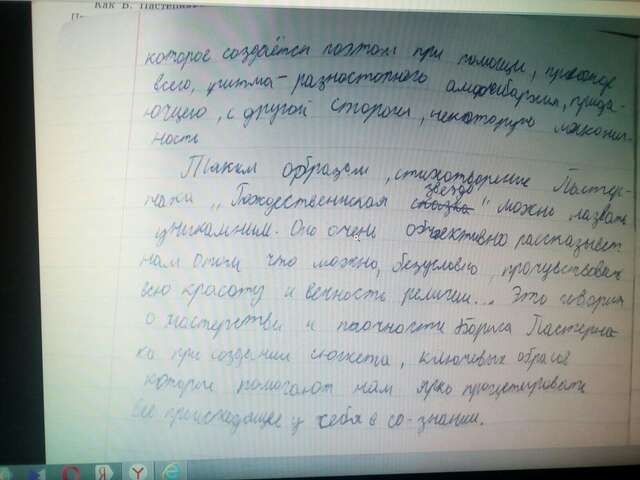 Как Б. Пастернак
которое создаётся поэтом при помощи, прежде
всего, ритма - разностопного амфибрахия, прида-
ющего, с другой стороны, некоторую лаконич-
ность
Таким образом, стихотворение Пастер-
нака „Рождественская звезда" можно назвать
уникальным. Оно очень объективно рассказывает
нам о том что можно, безусловно, прочувствовать
всю красоту и вечность религии... Это говорит
о мастерстве и Бориса Пастерна-
ка при создании сюжета, ключевых образов
которые помогают нам ярко
все происходящее у себя в со-знании.